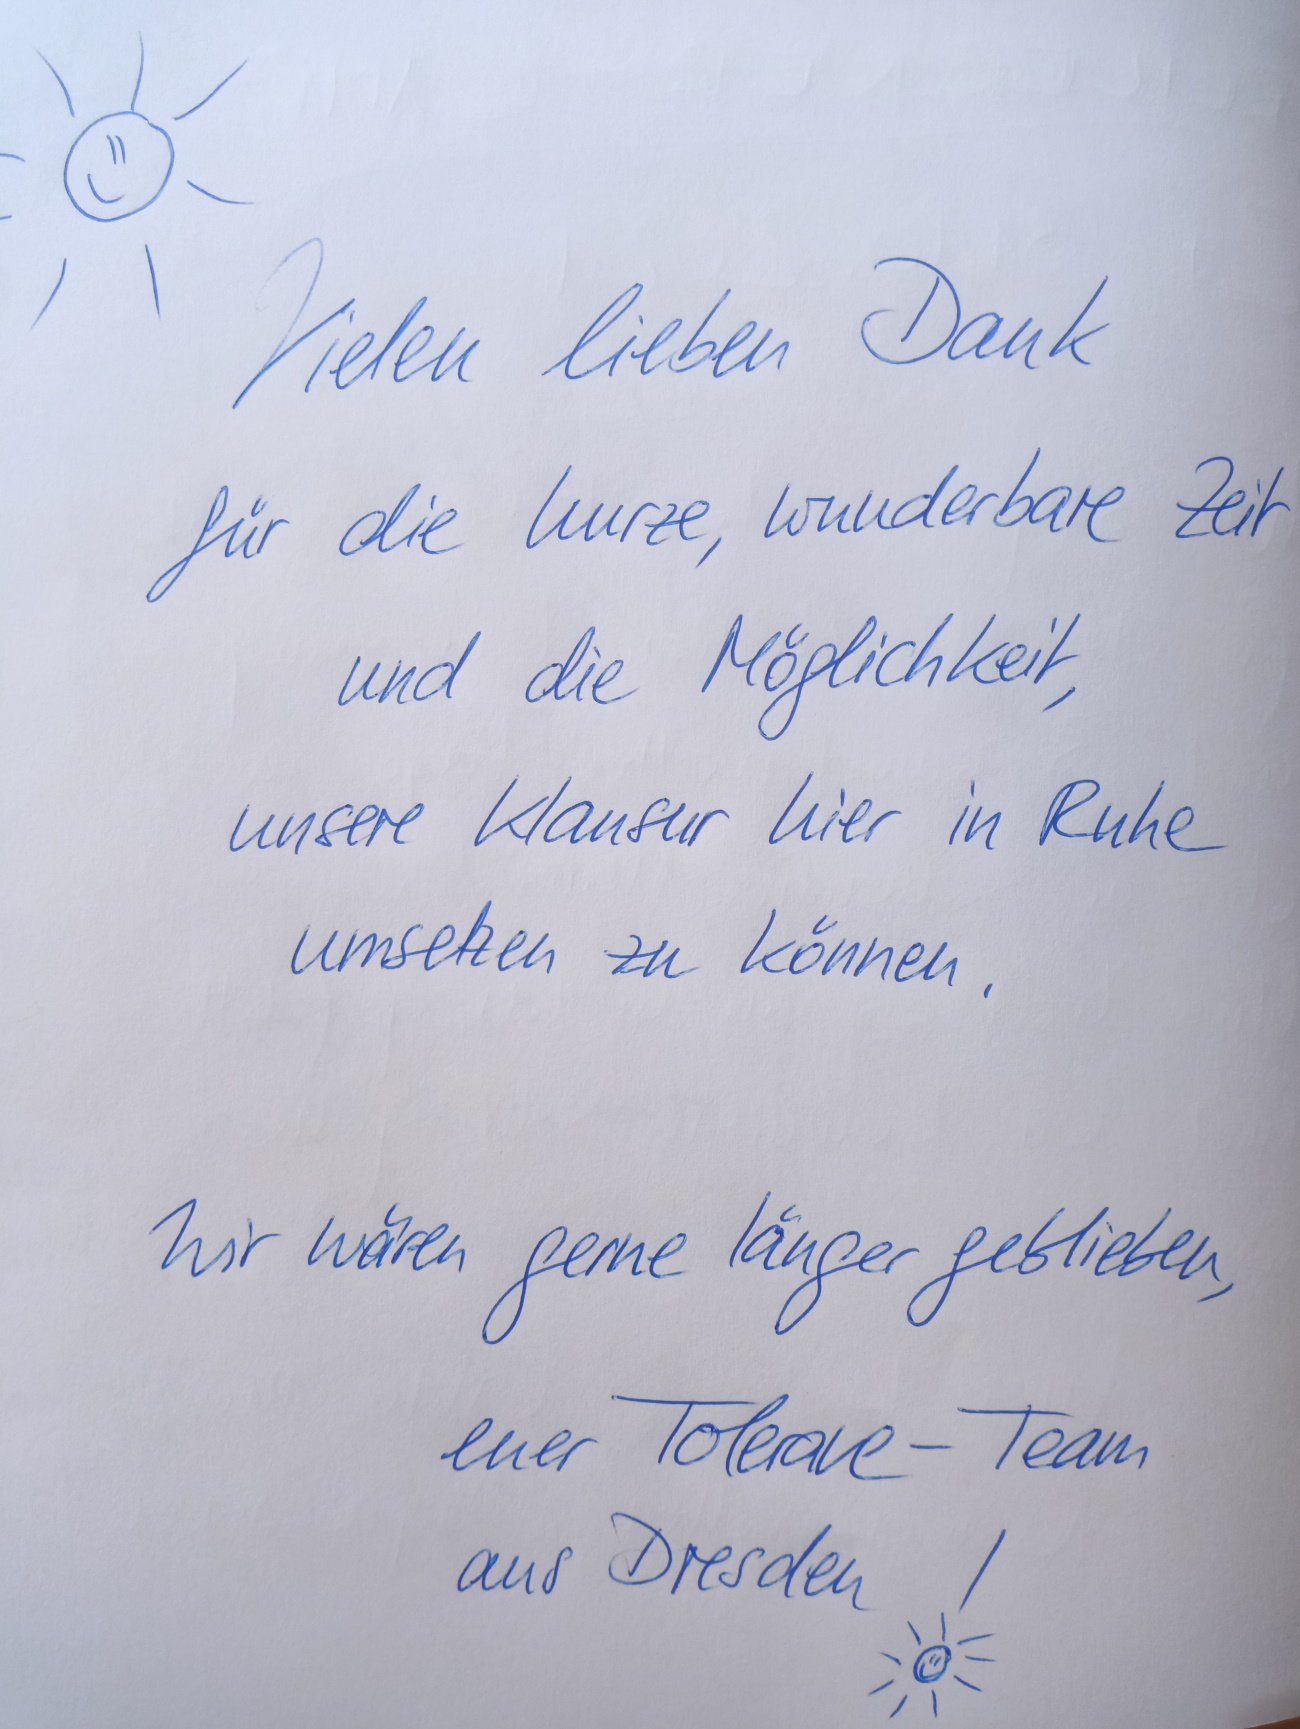 Vielen lieben Dank
für die kurze, wunderbare Zeit
und die Möglichkeit,
unsere Klausur hier in Ruhe
umsetzen zu können.
Wir wären gerne länger geblieben,
euer Tolerave-Team
aus Dresden !